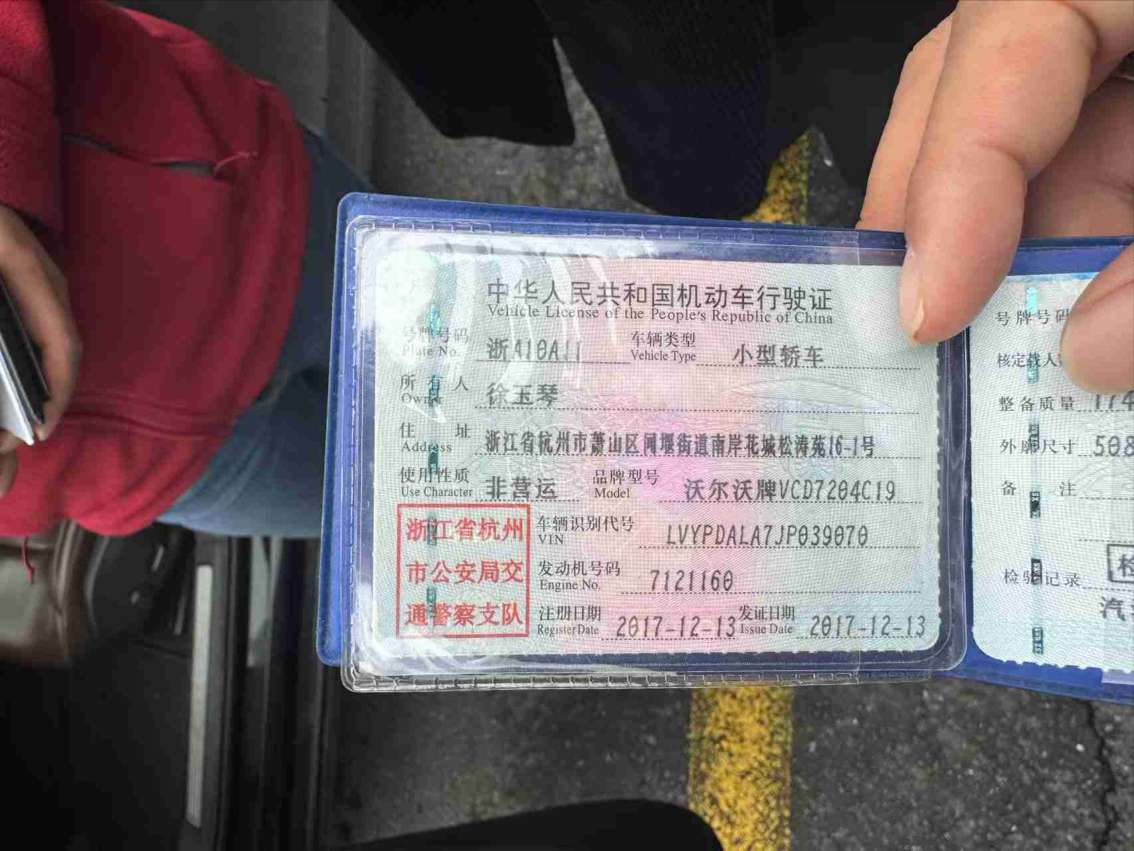 中华人民共和国机动车行驶证
Vehicle License of the People's Republic of China
号牌号码 浙A10A11 车辆类型 小型轿车
Plate No. Vehicle Type
所有人 徐玉琴
Owner
住址 浙江省杭州市萧山区闻堰街道南岸花城松涛苑16-1号
Address
使用性质 非营运 品牌型号 沃尔沃牌VCD7204C19
Use Character Model
浙江省杭州
市公安局交
通警察支队
车辆识别代号 LVYPDALA7JP039070
VIN
发动机号码 7121160
Engine No.
注册日期 2017-12-13 发证日期 2017-12-13
Register Date Issue Date
号牌号码
核定载人
整备质量 174
外廓尺寸 508
备注
检验记录
检
汽